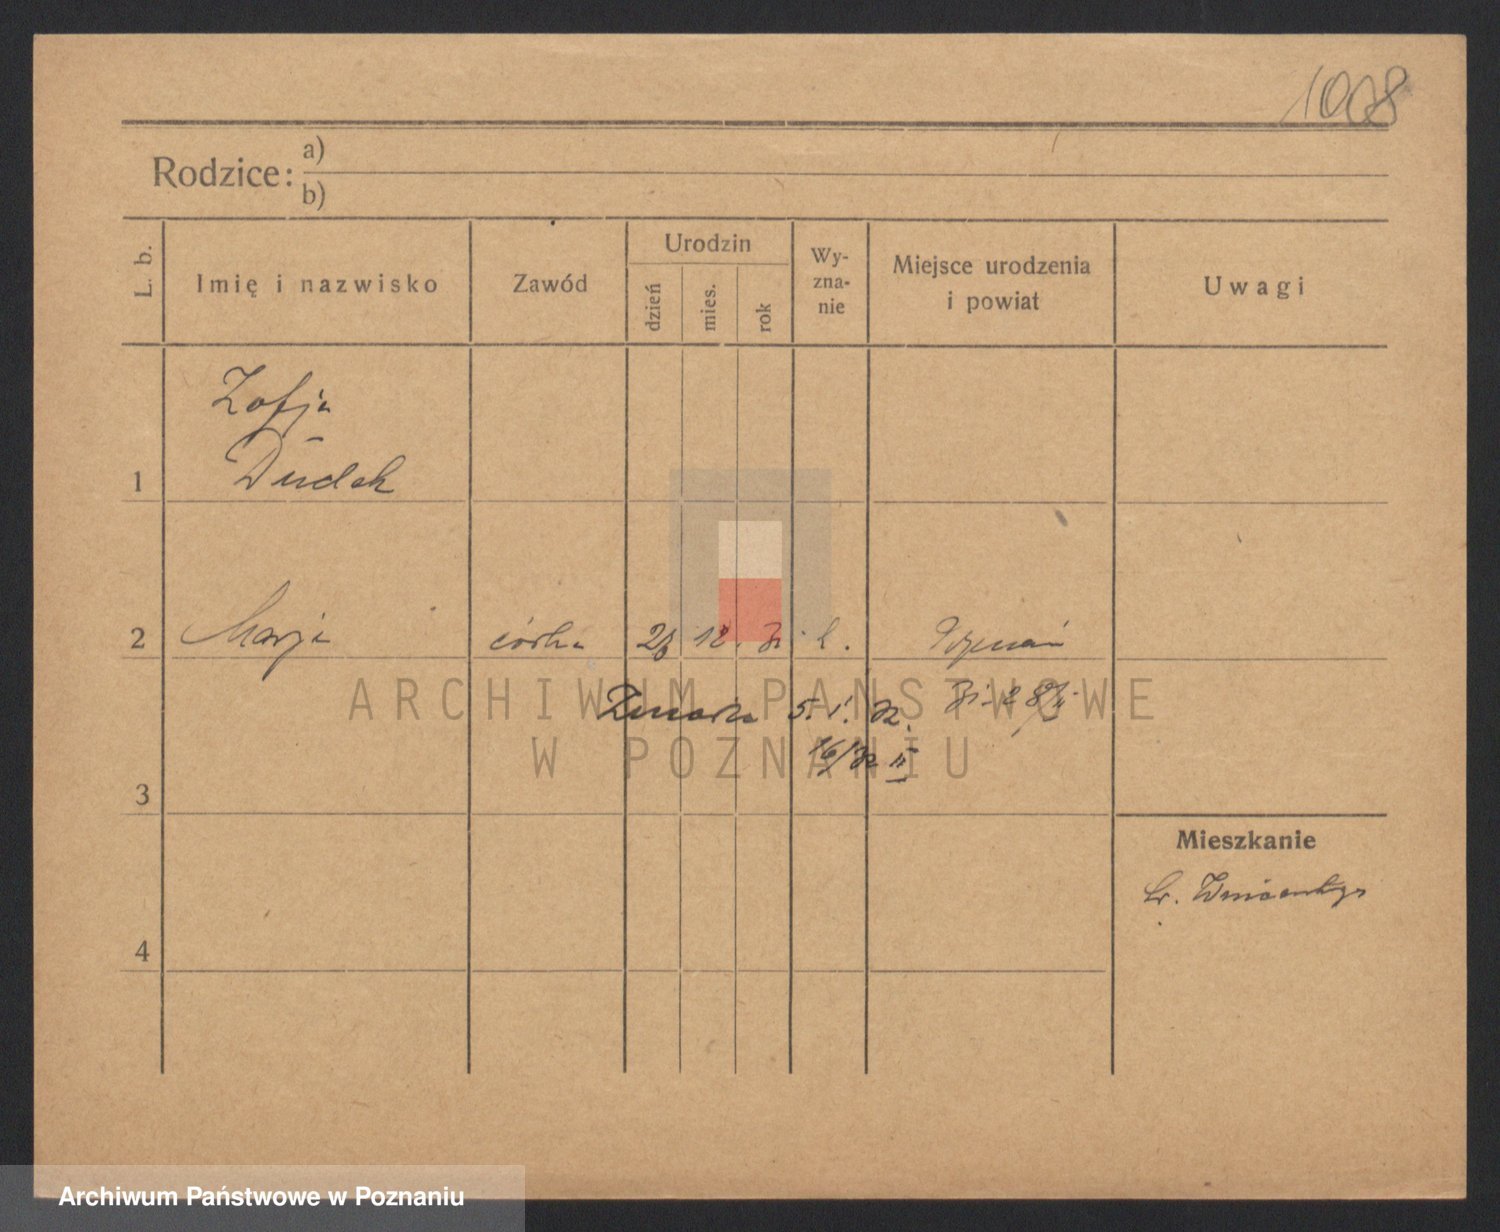 1008
Rodzice: a)
b)
L. b.
Imię i nazwisko
Zawód
Urodzin
dzień
mies.
rok
Wy-
zna-
nie
Miejsce urodzenia
i powiat
Uwagi
Zofja
1 Dudek
2 Marja córka 12. Poznań
Zmarła 5. 1. 32.
16/32 II
3
Mieszkanie
4
ARCHIWUM PAŃSTWOWE
W POZNANIU
Archiwum Państwowe w Poznaniu